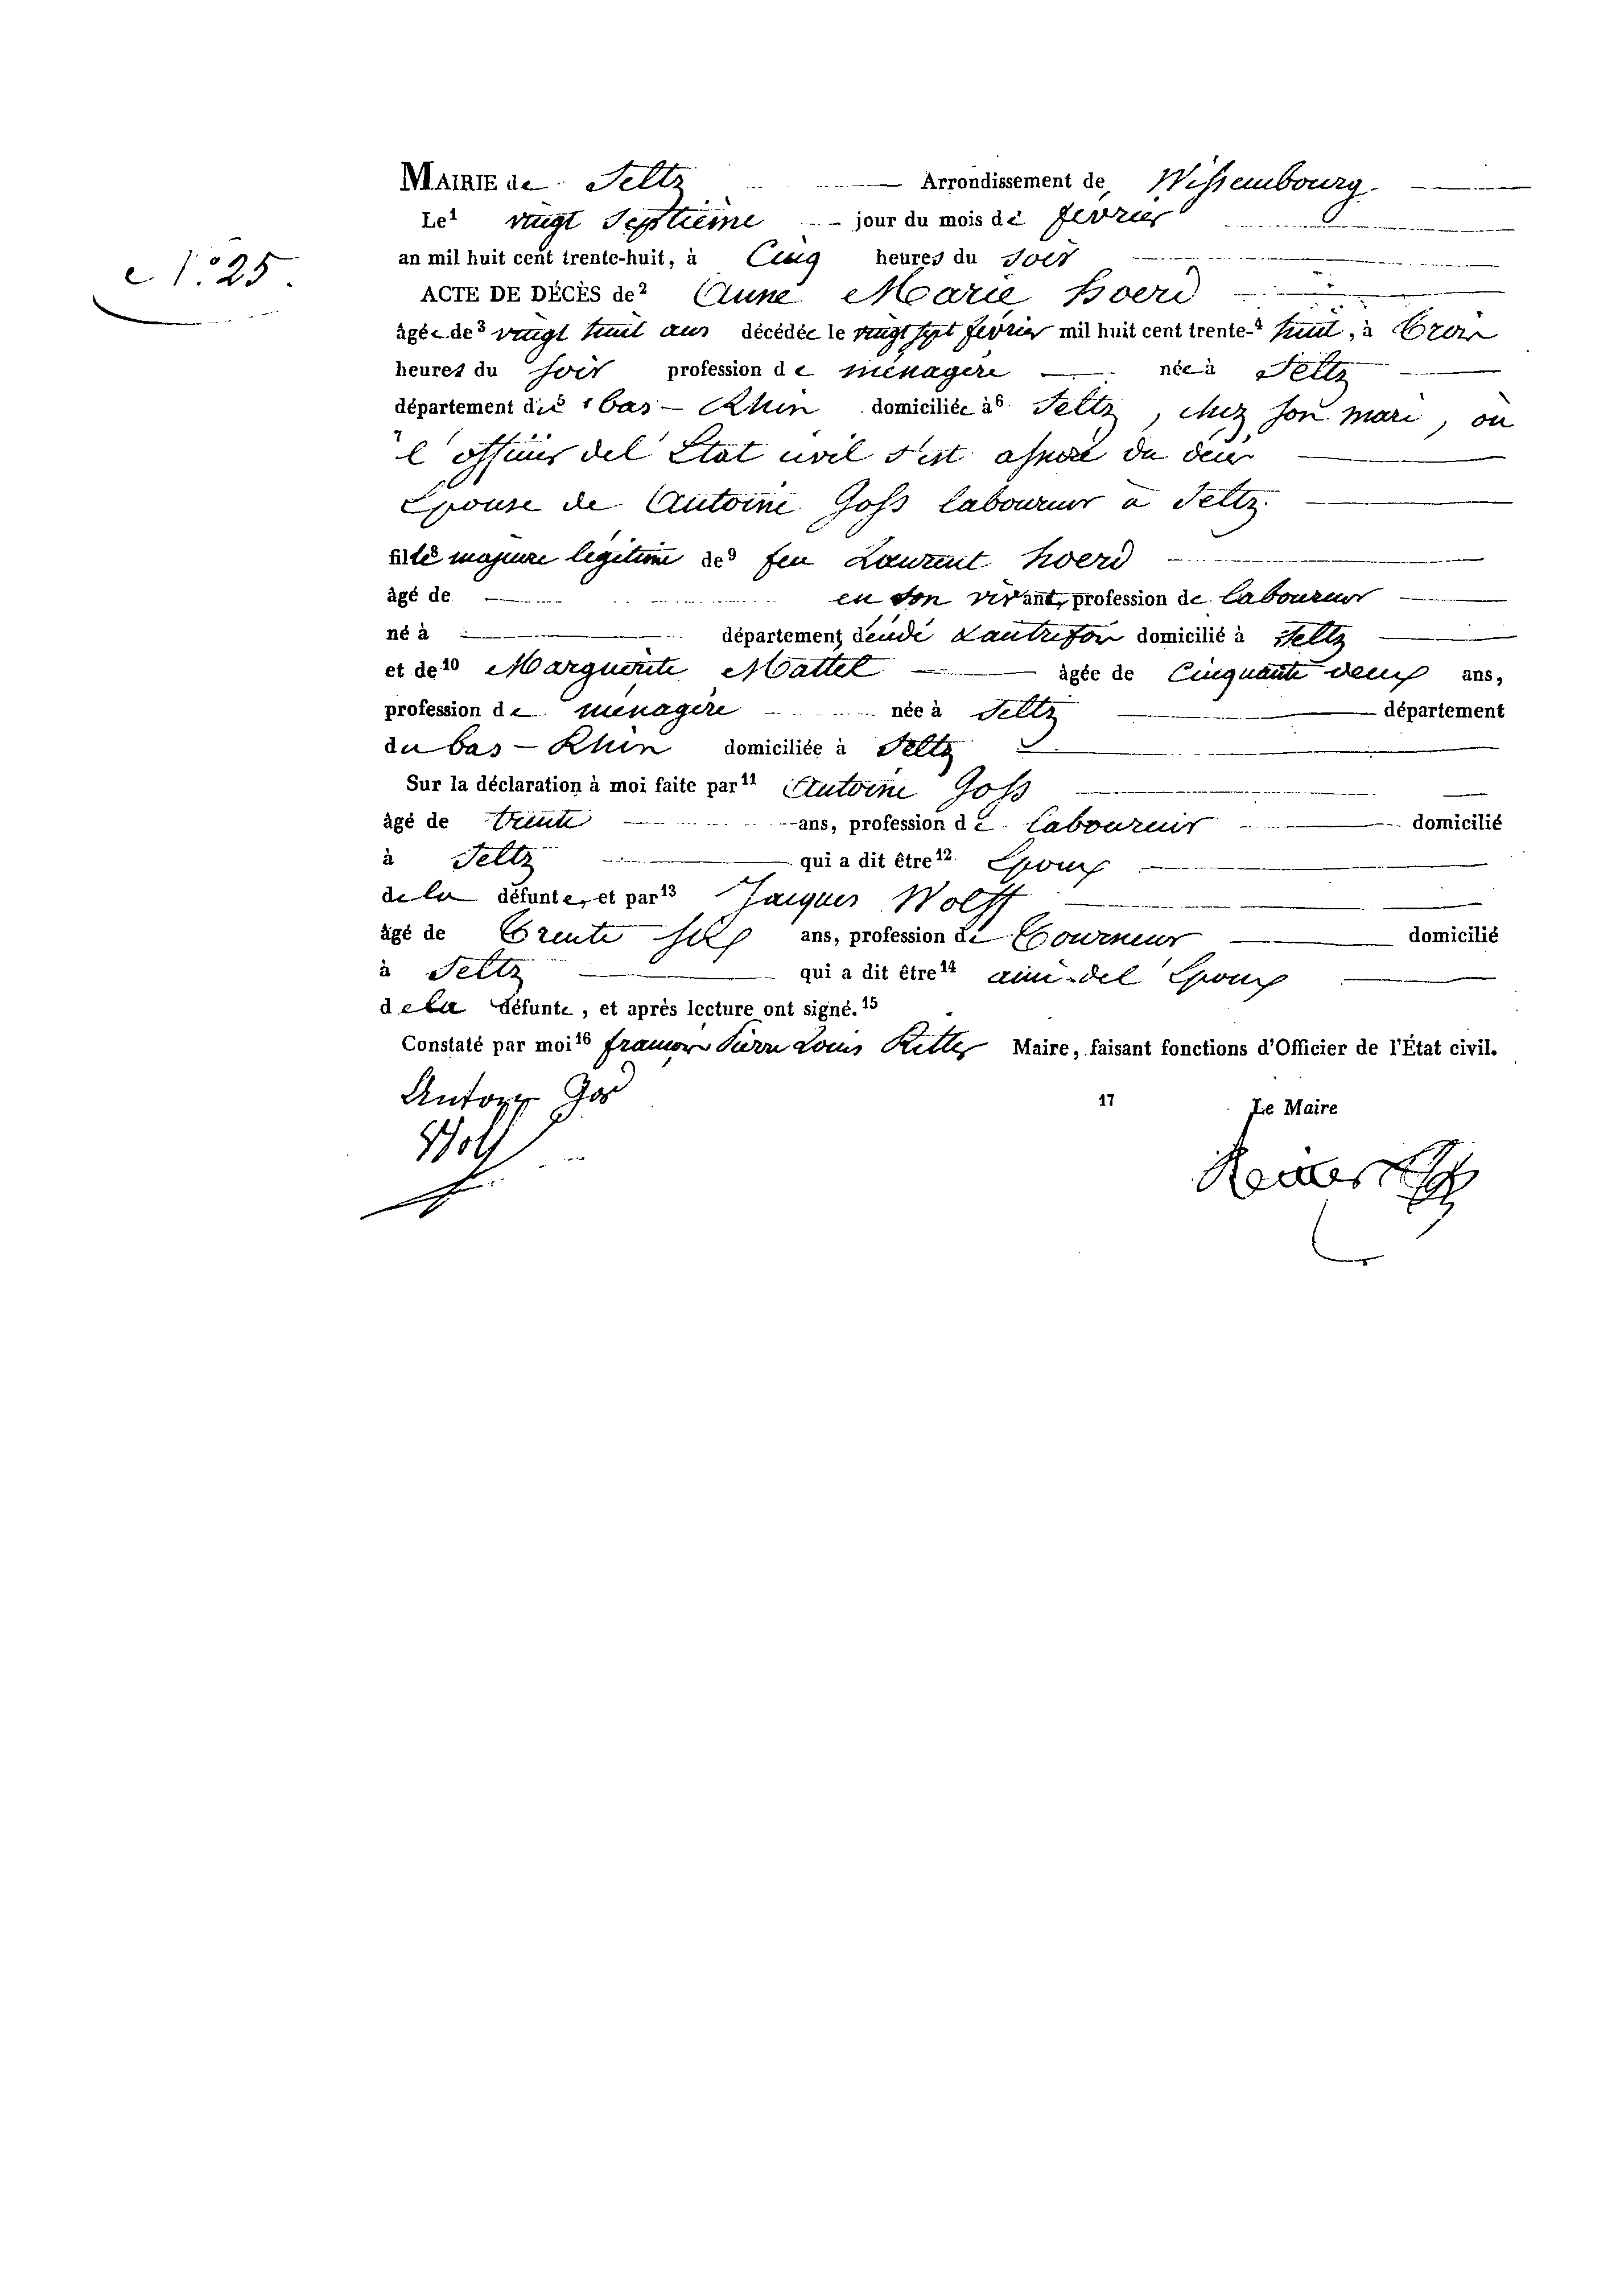 MAIRIE de Seltz Arrondissement de Wissembourg.
Le¹ vingt Septième jour du mois de février
N.° 25.
an mil huit cent trente-huit, à Cinq heures du soir
ACTE DE DÉCÈS de² Anne Marie hoerd
âgée de³ vingt huit ans décédée le vingt sept février mil huit cent trente-⁴ huit, à Trois
heures du soir profession de ménagère née à Seltz
département du⁵ bas-Rhin domiciliée à⁶ Seltz, chez son mari, où
⁷ l'officier de l'Etat civil s'est assuré du décès
Epouse de Antoine Goss laboureur à Seltz.
fille⁸ majeure légitime de⁹ feu Laurent hoerd
âgé de en son vivant, profession de laboureur
né à département, dendé d'autrefois domicilié à Seltz
et de¹⁰ Marguerite Mattel âgée de Cinquante deux ans,
profession de ménagère née à Seltz département
du bas-Rhin domiciliée à Seltz
Sur la déclaration à moi faite par¹¹ Antoine Goss
âgé de trente ans, profession de laboureur domicilié
à Seltz qui a dit être¹² Epoux
de la défunte, et par¹³ Jacques Wolff
âgé de Trente six ans, profession de Tourneur domicilié
à Seltz qui a dit être¹⁴ ami de l'Epoux
de la défunte, et après lecture ont signé.¹⁵
Constaté par moi¹⁶ françois Pierre Louis Ritter Maire, faisant fonctions d'Officier de l'État civil.
Anton Gos
17 Le Maire
Wolff